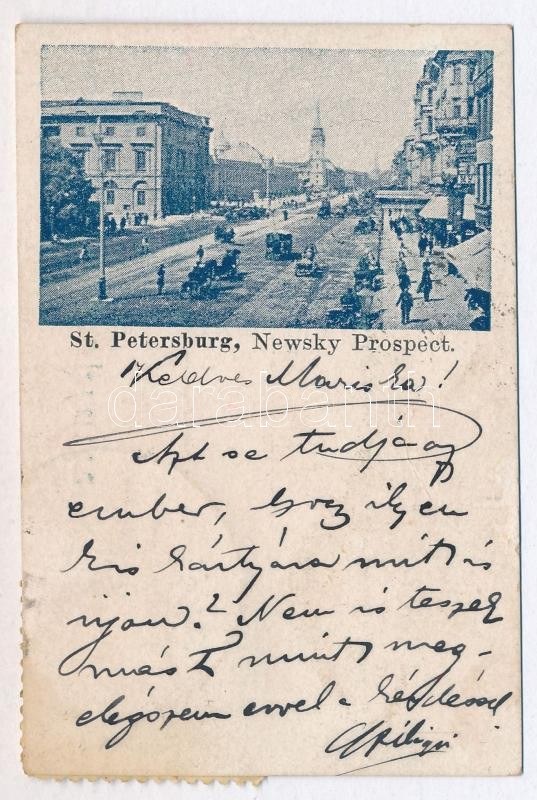 St. Petersburg, Newsky Prospect.
Kedves Mariska!
darabanth
Azt se tudja az
ember, hogy ilyen
kis kártyára mit is
irjon? Nem is teszek
mást mint meg-
elégszem evvel a kérdéssel